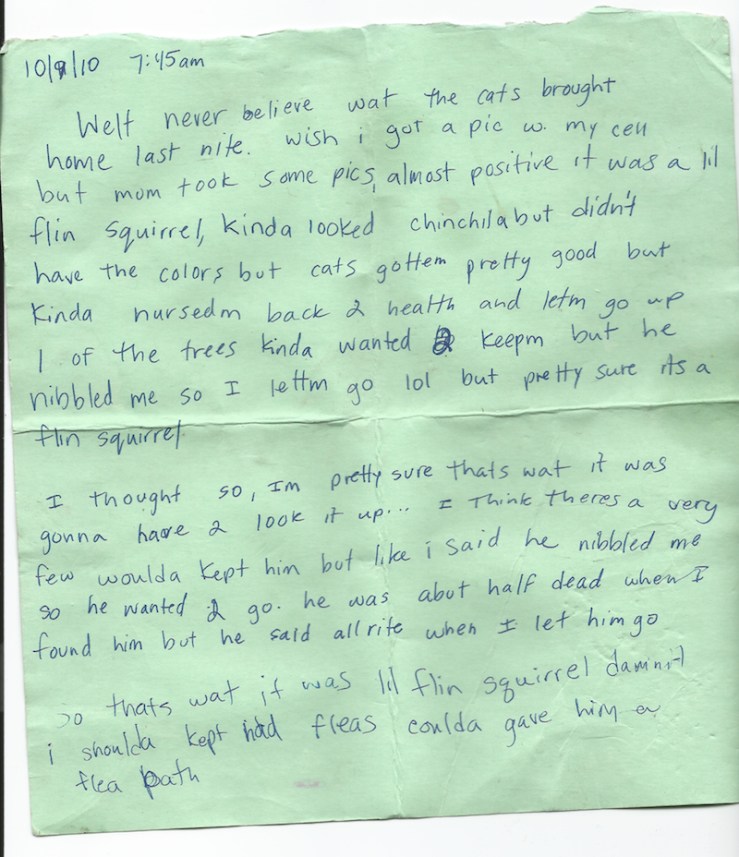 10/9/10 7:45am
Welf never believe wat the cats brought
home last nite. wish i got a pic w. my cell
but mom took some pics, almost positive it was a lil
flin squirrel, kinda looked chinchila but didn't
have the colors but cats gottem pretty good but
kinda nursedm back 2 health and letm go up
1 of the trees kinda wanted 2 keepm but he
nibbled me so I lettm go lol but pretty sure its a
flin squirrel.
I thought so, Im pretty sure thats wat it was
gonna have 2 look it up... I think theres a very
few woulda kept him but like i said he nibbled me
so he wanted 2 go. he was abut half dead when I
found him but he said allrite when I let him go
so thats wat it was lil flin squirrel damnit
i shoulda kept had fleas coulda gave him a
flea bath